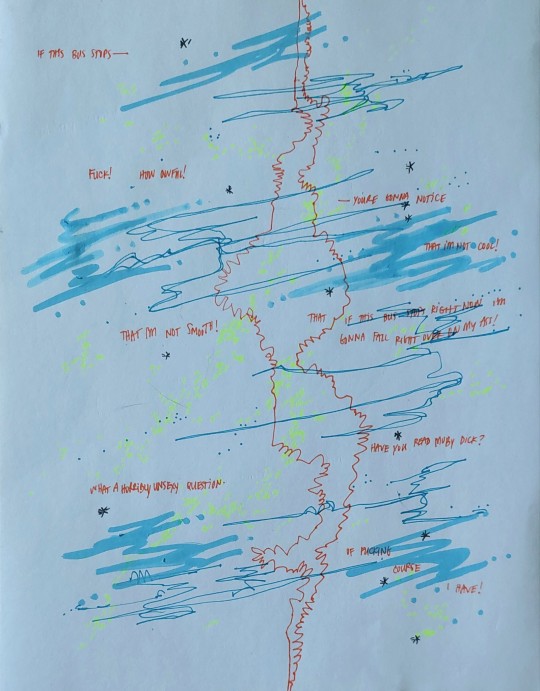 IF THIS BUS STOPS —
FUCK! HOW AWFUL!
— YOURE GONNA NOTICE
THAT I'M NOT COOL!
THAT I'M NOT SMOOTH!
THAT IF THIS BUS STOPS RIGHT NOW I'M
GONNA FALL RIGHT OVER ON MY ASS!
HAVE YOU READ MOBY DICK?
WHAT A HORRIBLY UNSEXY QUESTION.
OF FUCKING
COURSE
I HAVE!